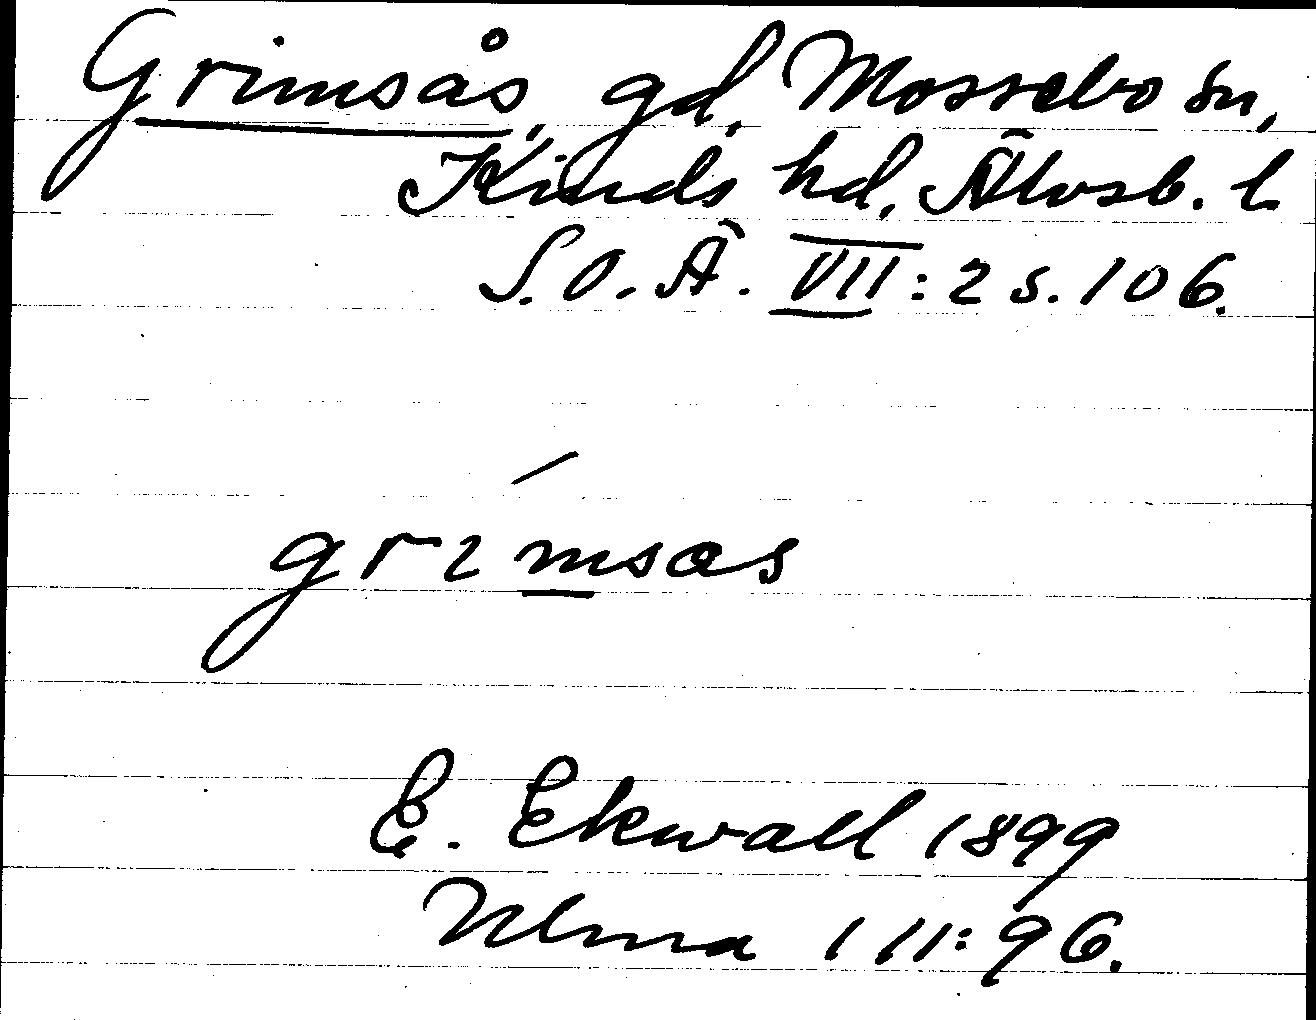 Grimsås, gd, Mossebo sn,
Kinds hd, Älvsb. l
S.O.Ä. VII: 2 s. 106.
grımsas
E. Ekwall 1899
Ulma 111:96.